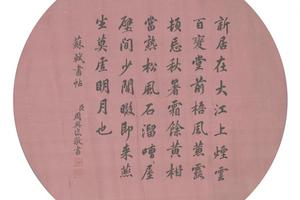 新居在大江上煙雲
百變堂前梧風蕉露
頓忘秋暑霜餘黃柑
當熟松風石溜嘈屋
壁間少閒暇即來燕
坐莫虛明月也
蘇軾書帖
臣周興岱敬書